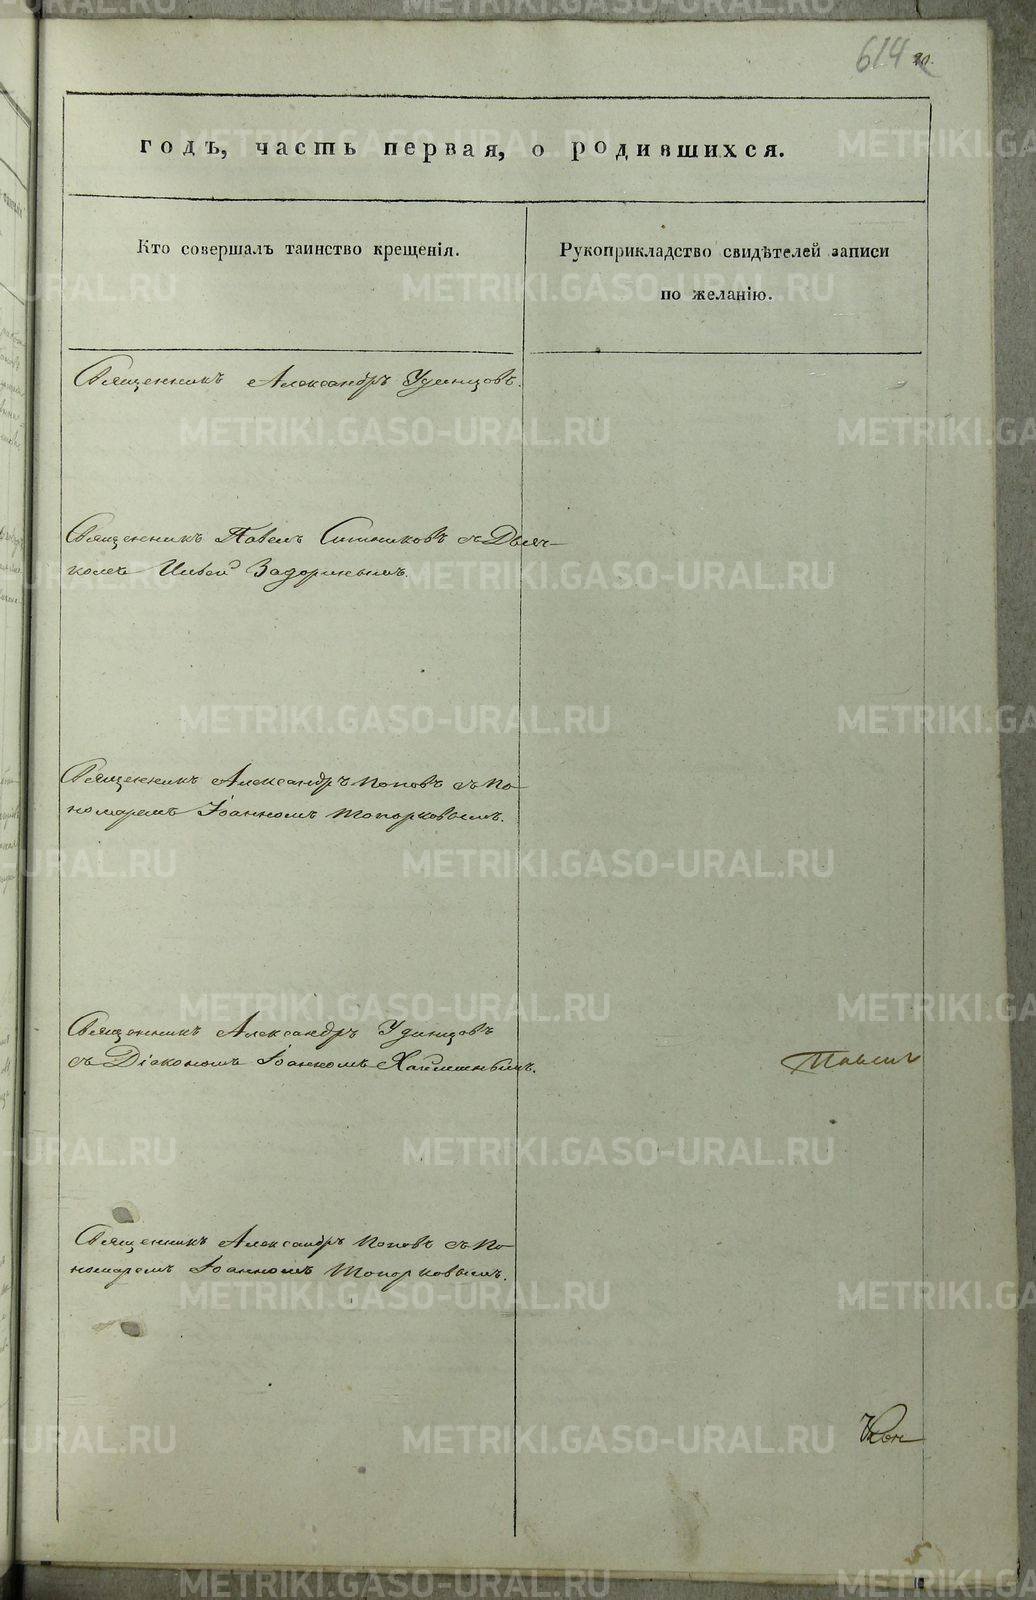 614
20.
годъ, часть первая, о родившихся.
Кто совершалъ таинство крещенія.
Рукоприкладство свидѣтелей записи
по желанію.
Священникъ Александръ Удинцовъ.
Священникъ Павелъ Ситниковъ съ Дьяч-
комъ Ильей Задоринымъ.
Священникъ Александръ Поповъ съ По-
номаремъ Іоанномъ Топорковымъ.
Священникъ Александръ Удинцовъ
съ Діакономъ Іоанномъ Хаймишнымъ.
Священникъ Александръ Поповъ съ По-
номаремъ Іоанномъ Топорковымъ.
METRIKI.GASO-URAL.RU